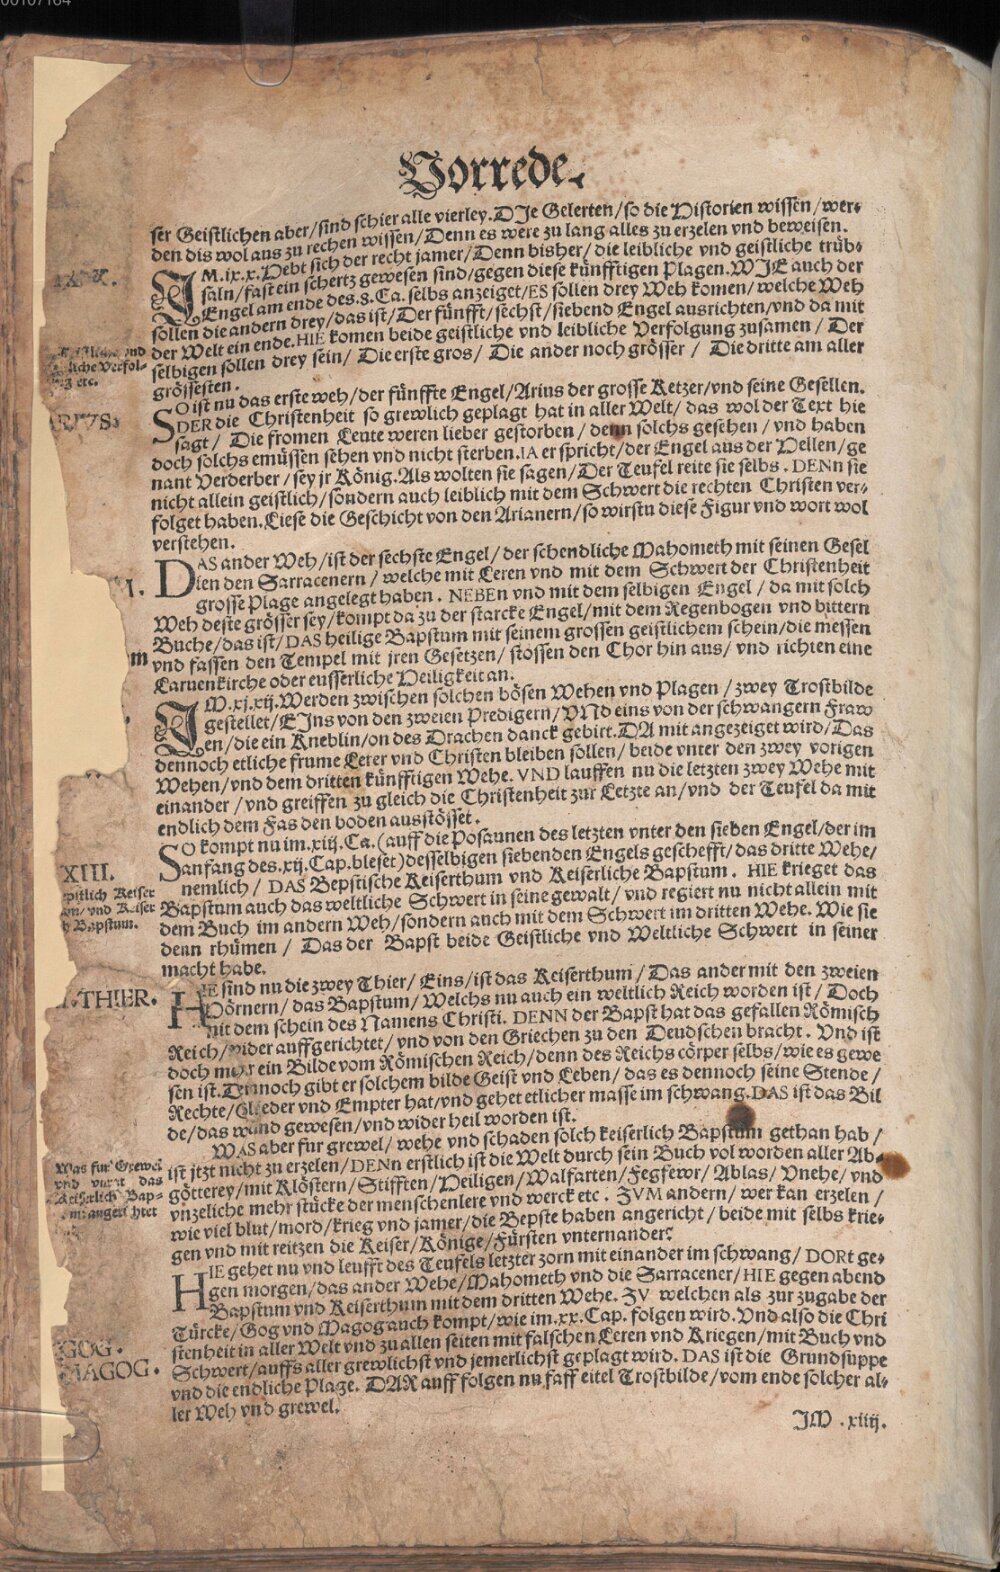 00107164
Vorrede.
ser Geistlichen aber/sind schier alle vierley. DIe Gelerten/so die Historien wissen/wer-
den dis wol aus zu rechen wissen/Denn es were zu lang alles zu erzelen vnd beweisen.
IM.ix.x. Hebt sich der recht jamer/Denn bisher/die leibliche vnd geistliche trüb-
saln/fast ein schertz gewesen sind/gegen diese künfftigen Plagen. WIE auch der
Engel am ende des.8.Ca. selbs anzeiget/ES sollen drey Weh komen/welche Weh
sollen die andern drey/das ist/Der fünfft/sechst/siebend Engel ausrichten/vnd da mit
der Welt ein ende. HIE komen beide geistliche vnd leibliche Verfolgung zusamen/Der
selbigen sollen drey sein/Die erste gros/Die ander noch grösser/Die dritte am aller
grössesten.
SO ist nu das erste weh/der fünffte Engel/Arius der grosse Ketzer/vnd seine Gesellen.
DER die Christenheit so grewlich geplagt hat in aller Welt/das wol der Text hie
sagt/Die fromen Leute weren lieber gestorben/denn solchs gesehen/vnd haben
doch solchs emüssen sehen vnd nicht sterben. IA er spricht/der Engel aus der Hellen/ge
nant Verderber/sey jr König. Als wolten sie sagen/Der Teufel reite sie selbs. DENn sie
nicht allein geistlich/sondern auch leiblich mit dem Schwert die rechten Christen ver-
folget haben. Liese die Geschicht von den Arianern/so wirstu diese Figur vnd wort wol
verstehen.
DAS ander Weh/ist der sechste Engel/der schendliche Mahometh mit seinen Gesel
len den Sarracenern/welche mit Leren vnd mit dem Schwert der Christenheit
grosse Plage angelegt haben. NEBEn vnd mit dem selbigen Engel/da mit solch
Weh deste grösser sey/kompt da zu der starcke Engel/mit dem Regenbogen vnd bittern
Buche/das ist/DAS heilige Bapstum mit seinem grossen geistlichem schein/die messen
vnd fassen den Tempel mit jren Gesetzen/stossen den Chor hin aus/vnd richten eine
Laruenkirche oder eusserliche Heiligkeit an.
IM.xj.xij. Werden zwischen solchen bösen Wehen vnd Plagen/zwey Trostbilde
gestellet/EIns von den zweien Predigern/VNd eins von der schwangern Fraw
en/die ein Kneblin/on des Drachen danck gebirt. DA mit angezeiget wird/Das
dennoch etliche frume Lerer vnd Christen bleiben sollen/beide vnter den zwey vorigen
Wehen/vnd dem dritten künfftigen Wehe. VND lauffen nu die letzten zwey Wehe mit
einander/vnd greiffen zu gleich die Christenheit zur Letzte an/vnd der Teufel da mit
endlich dem Fas den boden ausstösset.
SO kompt nu im.xiij.Ca.(auff die Posaunen des letzten vnter den sieben Engel/der im
anfang des.xij.Cap.bleset) desselbigen siebenden Engels geschefft/das dritte Wehe/
nemlich/DAS Bepstische Keiserthum vnd Keiserliche Bapstum. HIE krieget das
Bapstum auch das weltliche Schwert in seine gewalt/vnd regiert nu nicht allein mit
dem Buch im andern Weh/sondern auch mit dem Schwert im dritten Wehe. Wie sie
denn rhümen/Das der Bapst beide Geistliche vnd Weltliche Schwert in seiner
macht habe.
HIE sind nu die zwey Thier/Eins/ist das Keiserthum/Das ander mit den zweien
Hörnern/das Bapstum/Welchs nu auch ein weltlich Reich worden ist/Doch
mit dem schein des Namens Christi. DENN der Bapst hat das gefallen Römisch
Reich/wider auffgerichtet/vnd von den Griechen zu den Deudschen bracht. Vnd ist
doch mehr ein Bilde vom Römischen Reich/denn des Reichs cörper selbs/wie es gewe
sen ist. Dennoch gibt er solchem bilde Geist vnd Leben/das es dennoch seine Stende/
Rechte/Glieder vnd Empter hat/vnd gehet etlicher masse im schwang. DAS ist das Bil
de/das wund gewesen/vnd wider heil worden ist.
WAS aber fur grewel/wehe vnd schaden solch keiserlich Bapstum gethan hab/
ist jtzt nicht zu erzelen/DENn erstlich ist die Welt durch sein Buch vol worden aller Ab-
götterey/mit Klöstern/Stifften/Heiligen/Walfarten/Fegfewr/Ablas/Vnehe/vnd
vnzeliche mehr stücke der menschenlere vnd werck etc. ZVM andern/wer kan erzelen/
wie viel blut/mord/krieg vnd jamer/die Bepste haben angericht/beide mit selbs krie-
gen vnd mit reitzen die Keiser/Könige/Fürsten vnternander?
HIE gehet nu vnd leufft des Teufels letzter zorn mit einander im schwang/DORt ge-
gen morgen/das ander Wehe/Mahometh vnd die Sarracener/HIE gegen abend
Bapstum vnd Keiserthum mit dem dritten Wehe. ZV welchen als zur zugabe der
Türcke/Gog vnd Magog auch kompt/wie im.xx.Cap. folgen wird. Vnd also die Chri
stenheit in aller Welt vnd zu allen seiten mit falschen Leren vnd Kriegen/mit Buch vnd
Schwert/auffs aller grewlichst vnd jemerlichst geplagt wird. DAS ist die Grundsuppe
vnd die endliche Plage. DAR auff folgen nu fast eitel Trostbilde/vom ende solcher al-
ler Weh vnd grewel.
IM .xiiij.
IX. X.
vnd
liche Verfol-
etc.
RIVS.
m
XIII.
Keiser
vnd Keiser
Bapstum.
THIER.
Was fur Grewel
vnd das
Keiserlich Bap-
angerichtet
GOG.
MAGOG.